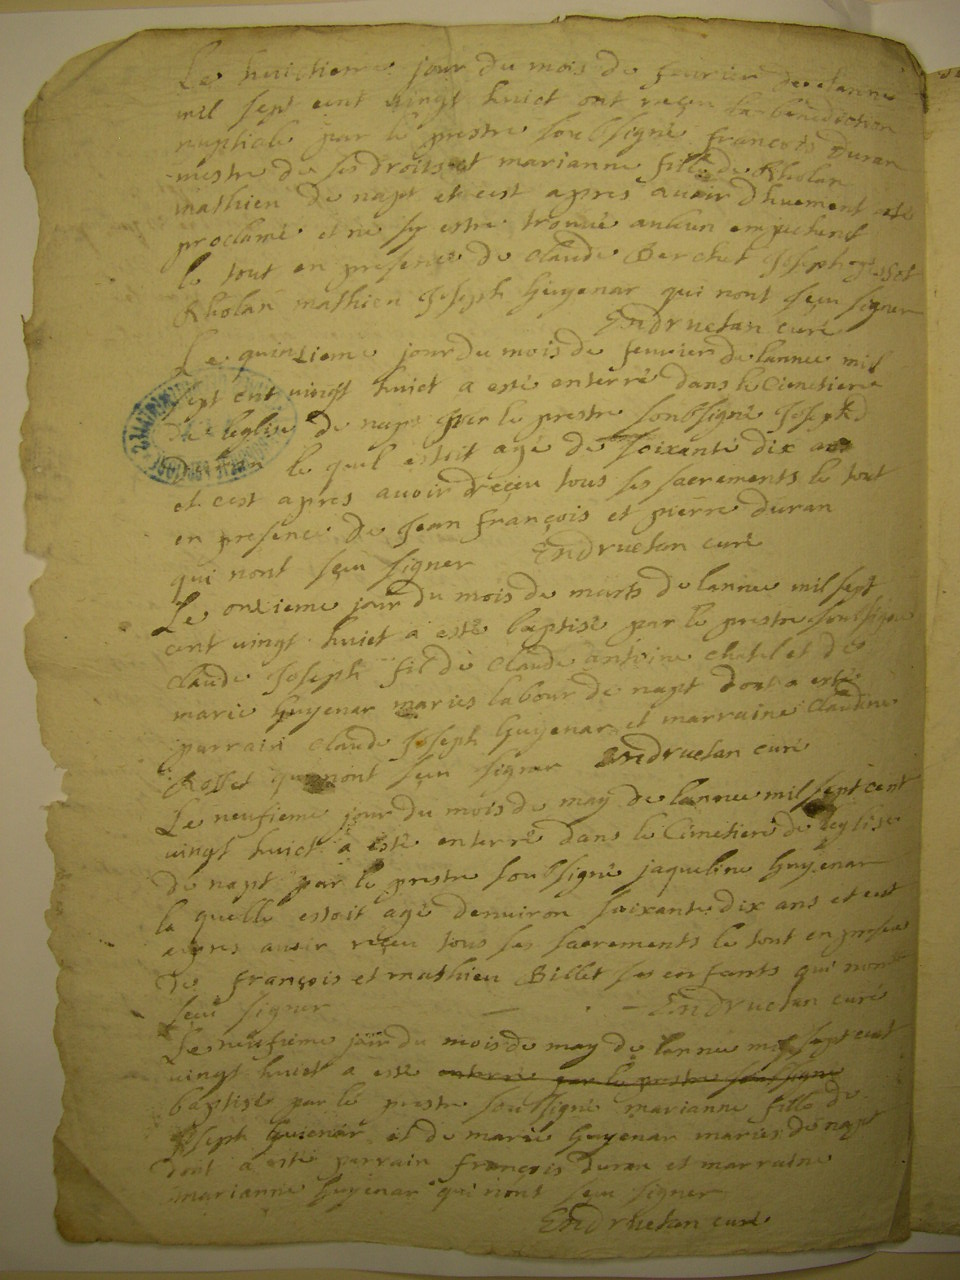 Le huictieme jour du mois de feurier de lanne
mil sept cent vingt huict ont reçeu la bénédiction
nuptiale par le prestre soubsigné françois duran
mestre de ses droits et marianne fille de Rholan
mathieu de napt et cest apres auoir dhuement esté
proclamé et ne sy estre trouué aukun empechent
le tout en presence de claude Berchet Joseph
Rholan mathieu Joseph Guyenar qui nont seu signer
Endruetan curé
Le quinsieme jour du mois de feurier de lannee mil
sept cent vingt huict a esté enterré dans le Cimetiere
de leglise de napt par le prestre soubsigné Joseph
le quel estoit agé de soixante dix ans
et cest apres auoir reçeu tous ses sacrements le tout
en presence de Jean françois et pierre duran
qui nont sçeu signer Endruetan curé
Le onsieme jour du mois de marts de lannee mil sept
cent vingt huict a esté baptisé par le prestre soubsigné
claude Joseph fil de claude antoine chatelet de
marie Guyenar maries labour de napt dont a esté
parrain claude Joseph Guyenar et marraine Claudine
Rosset qui nont seu signer Endruetan curé
Le neufieme jour du mois de may de lannee mil sept cent
vingt huict a esté enterré dans le Cimetiere de leglise
de napt par le prestre soubsigné jaqueline Guyenar
la quelle estoit agé denuiron soixante dix ans et cest
apres auoir reçeu tous ses sacrements le tout en presence
de françois et mathieu Billet ses enfants qui nont
seu signer Endruetan curé
Le neufieme jour du mois de may de lannee mil sept cent
vingt huict a esté enterré par le prestre soubsigné
baptisé par le prestre soubsigné marianne fille de
Joseph Guienar et de marie Guyenar maries de napt
dont a esté parrain françois duran et marraine
marianne Guyenar qui nont seu signer
Endruetan curé